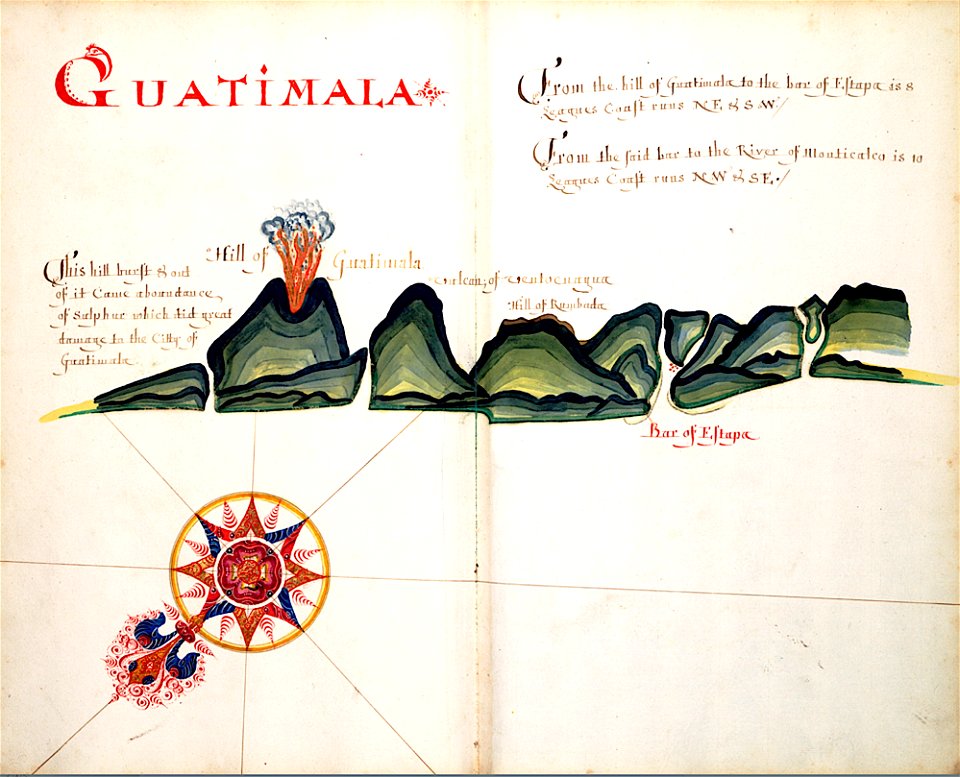 GUATIMALA
From the hill of Guatimala to the bar of Estapa is 8
Leagues Coast runs NE & SW
From the said bar to the River of Monticalco is 10
Leagues Coast runs NW & SE
This hill burst & out
of it Came aboundance
of Sulphur which did great
damage to the Citty of
Guatimala
Hill of Guatimala
vulcan of
Hill of Rumbada
Bar of Estapa